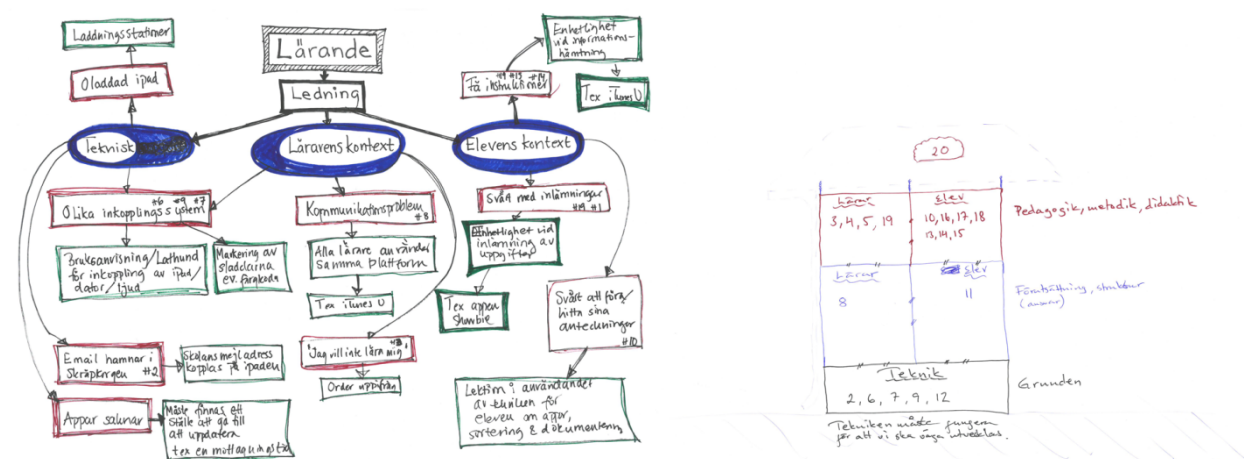 Laddningsstationer
Oladdad ipad
Lärande
Ledning
Enhetlighet
vid informations-
hämtning
Få instruktioner
#9 #13 #14
Tex itunes U
Teknisk
Läravens kontext
Elevens kontext
#6 #9 #7
Olika inkopplingssystem
Bruksanvisning/Lathund
för inkoppling av ipad/
dator/ljud
Markering av
sladdarna
ev. färgkoda
Kommunikationsproblem
#8
Alla lärare använder
samma plattform
Tex itunes U
Svårt med inlämningar
#1
Enhetlighet vid
inlämning av
uppgifter
Tex appen
Showbie
Svårt att föra/
hitta sina
anteckningar
#10
Lektion i användandet
av tekniken för
eleven om appar,
sortering & dokumentering
Email hamnar i
Skräpkorgen #2
Skolans mejladress
kopplas på ipaden
"Jag vill inte lära mig"
Order uppifrån
Appar saknar
Måste finnas ett
ställe att gå till
att uppdatera
tex en mottagningstid
20
Lärar
3, 4, 5, 19
elev
10, 16, 17, 18
13, 14, 15
Pedagogik, metodik, didaktik
Lärar
8
elev
11
Förhållning, struktur
(ansvar)
Teknik
2, 6, 7, 9, 12
Grunden
Tekniken måste fungera
för att vi ska våga utvecklas.